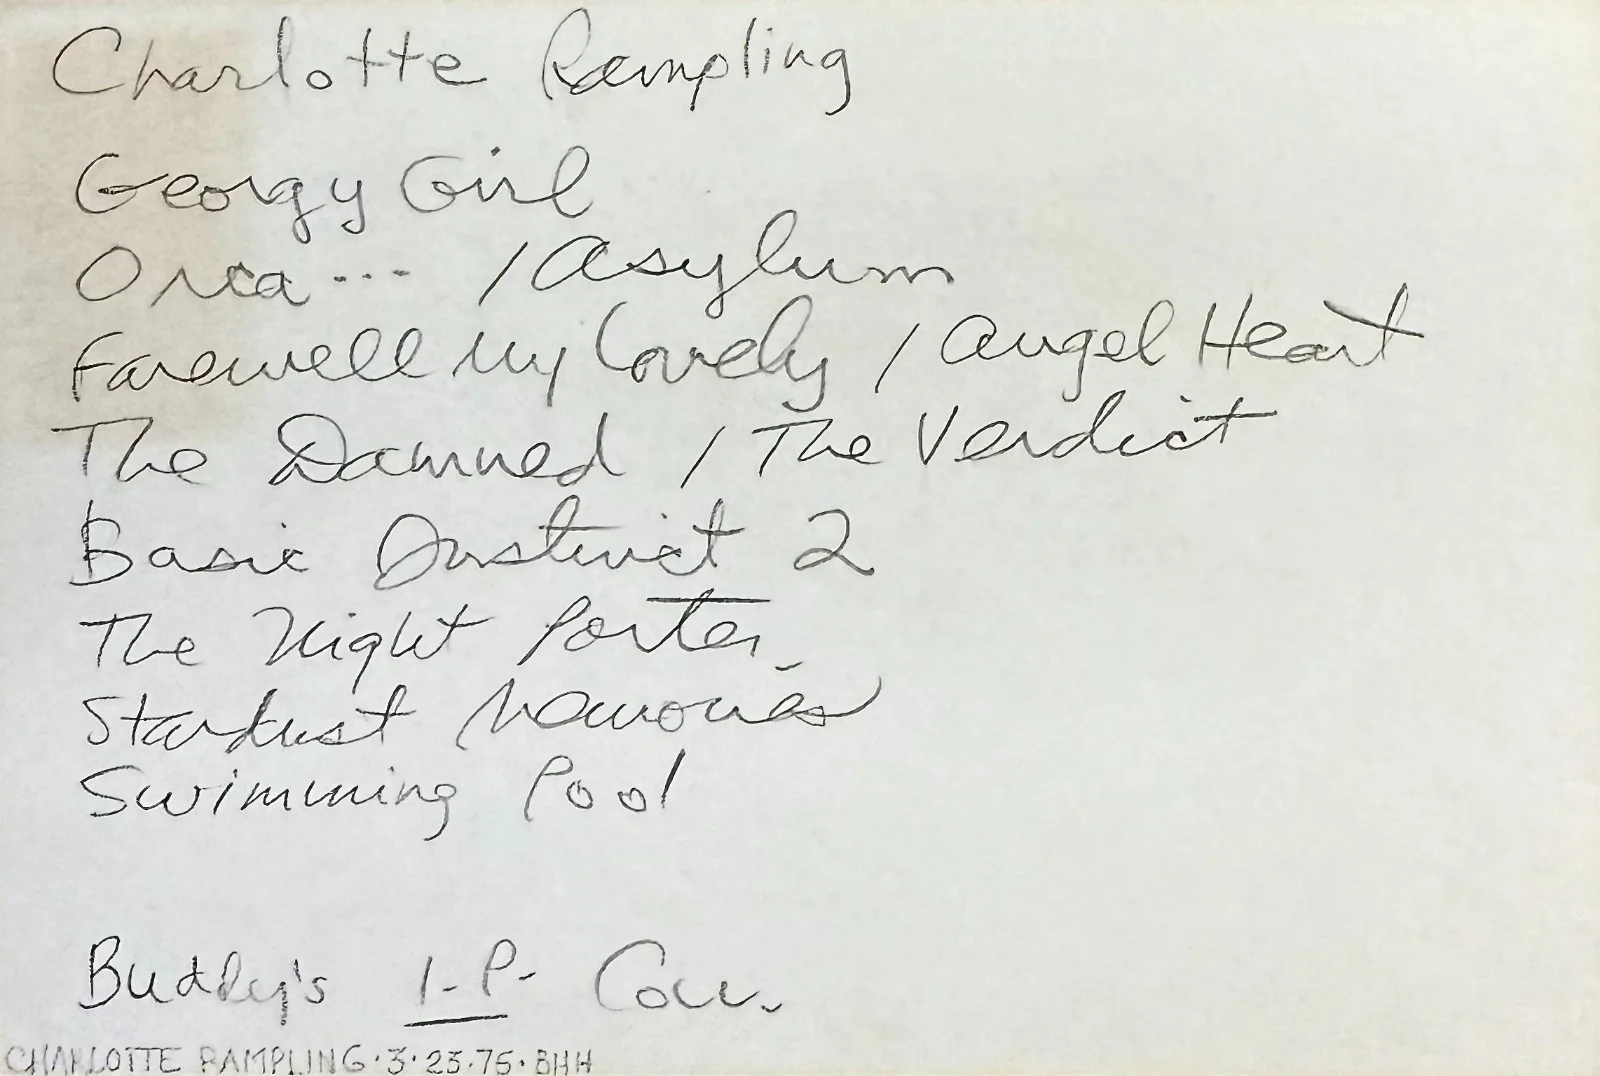 Charlotte Rampling
Georgy Girl
Orca --- / Asylum
Farewell My Lovely / Angel Heart
The Damned / The Verdict
Basic Instinct 2
The Night Porter
Stardust Memories
Swimming Pool
Buddy's I.P.
CHARLOTTE RAMPLING · 3 · 23 · 75 · BHH